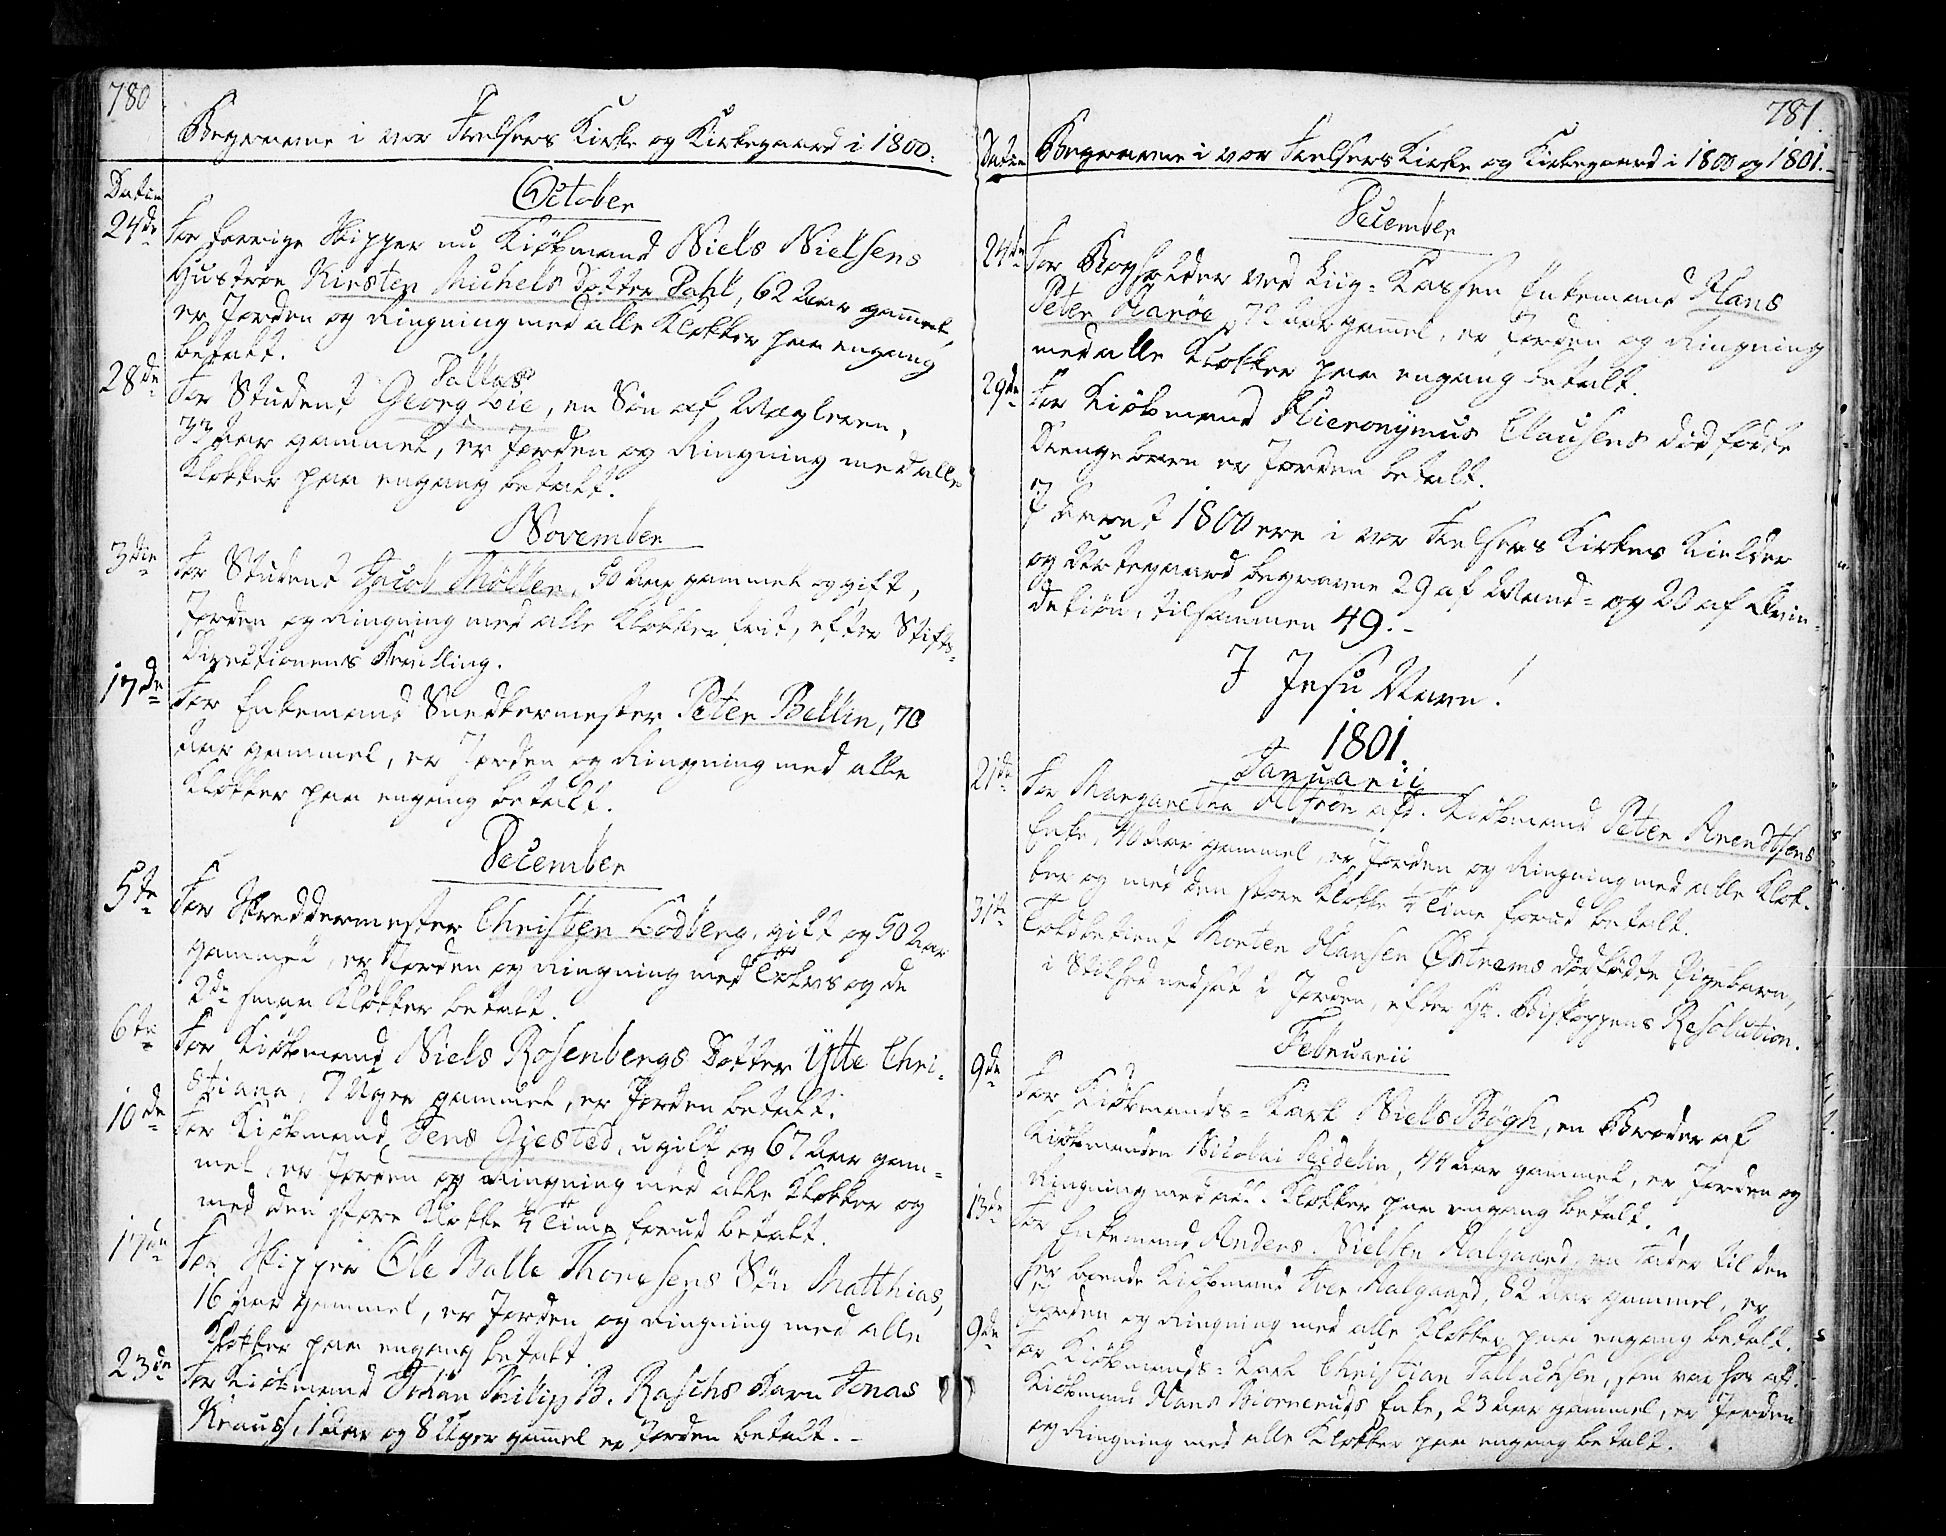 780
Begravne i vor Frelsers Kirke og Kirkegaard i 1800.
Datum
October
24de For forrige Skipper nu Kiøbmand Niels Nielsens
Hustroe Kirsten Michels Dotter Dahl, 62 Aar gammel,
er Jorden og Ringning med alle Klokker paa engang
betalt.
Pallas
28de For Student Georg Lie, en Søn af Mægleren,
33 Aar gammel, er Jorden og Ringning med alle
Klokker paa engang betalt.
November
3die For Student Jacob Møller, 50 Aar gammel og gift,
Jorden og Ringning med alle Klokker frit, efter Stifts-
Directionens Bevilling.
17de For Enkemand Snedkermester Peter Bellin, 70
Aar gammel, er Jorden og Ringning med alle
Klokker paa engang betalt.
December
5te For Skreddermester Christen Lodberg, gift og 50 Aar
gammel, er Jorden og Ringning med og de
2de smaa Klokker betalt.
6te For Kiøbmand Niels Rosenbergs Dotter Ytte Chri-
stiana, 7 Uger gammel, er Jorden betalt.
10de For Kiøbmand Jens Gjested, ugift og 67 Aar gam-
mel, er Jorden og Ringning med alle Klokker og
med den store Klokke ¼ Time forud betalt.
17de For Skipper Ole Balle Thoresens Søn Matthias,
16 Aar gammel, er Jorden og Ringning med alle
Klokker paa engang betalt.
23de For Kiøbmand Johan Philip B. Raschs Barn Jonas
Krauss, 1 Aar og 8 Uger gammel er Jorden betalt.
781.
Datum Begravne i vor Frelsers Kirke og Kirkegaard i 1800 og 1801.
December
24de For Bogholder ved Liig-Kassen Enkemand Hans
Peter Harøe, 72 Aar gammel, er Jorden og Ringning
med alle Klokker paa engang betalt.
29de For Kiøbmand Hieronymus Clausens dødfødte
Drengebarn er Jorden betalt.
I Aaret 1800 ere i vor Frelsers Kirkes Kielder
og Urtegaard begravne 29 af Mand- og 20 af Qvin-
dekiøn, tilsammen 49.
I Jesu Navn!
1801.
Januarii
21de For Margaretha Alstrøn afd. Kiøbmand Peter Arendtsens
Enke, 40 Aar gammel, er Jorden og Ringning med alle Klok-
ker og med den store Klokke ¼ Time forud betalt.
31te Toldbetient Morten Hansen Østrems dødfødte Pigebarn,
i Stilhed nedsat i Jorden, efter Hr. Biskoppens Resolution.
Februarii
9de For Kiøbmands-Karl Niels Bögh, en Broder af
Kiøbmanden Nicolai Seidelin, 44 Aar gammel, er Jorden og
Ringning med all. Klokker paa engang betalt.
13de For Enkemand Anders Nielsen Aalgaard, en Fader til den
her boende Kiøbmand Iver Aalgaard, 82 Aar gammel, er
Jorden og Ringning med alle Klokker paa engang betalt.
9de For Kiøbmands-Karl Christian Tallachsen, som var hos afd.
Kiøbmand Hans Biorneruds Enke, 23 Aar gammel, er Jorden
og Ringning med alle Klokker paa engang betalt.